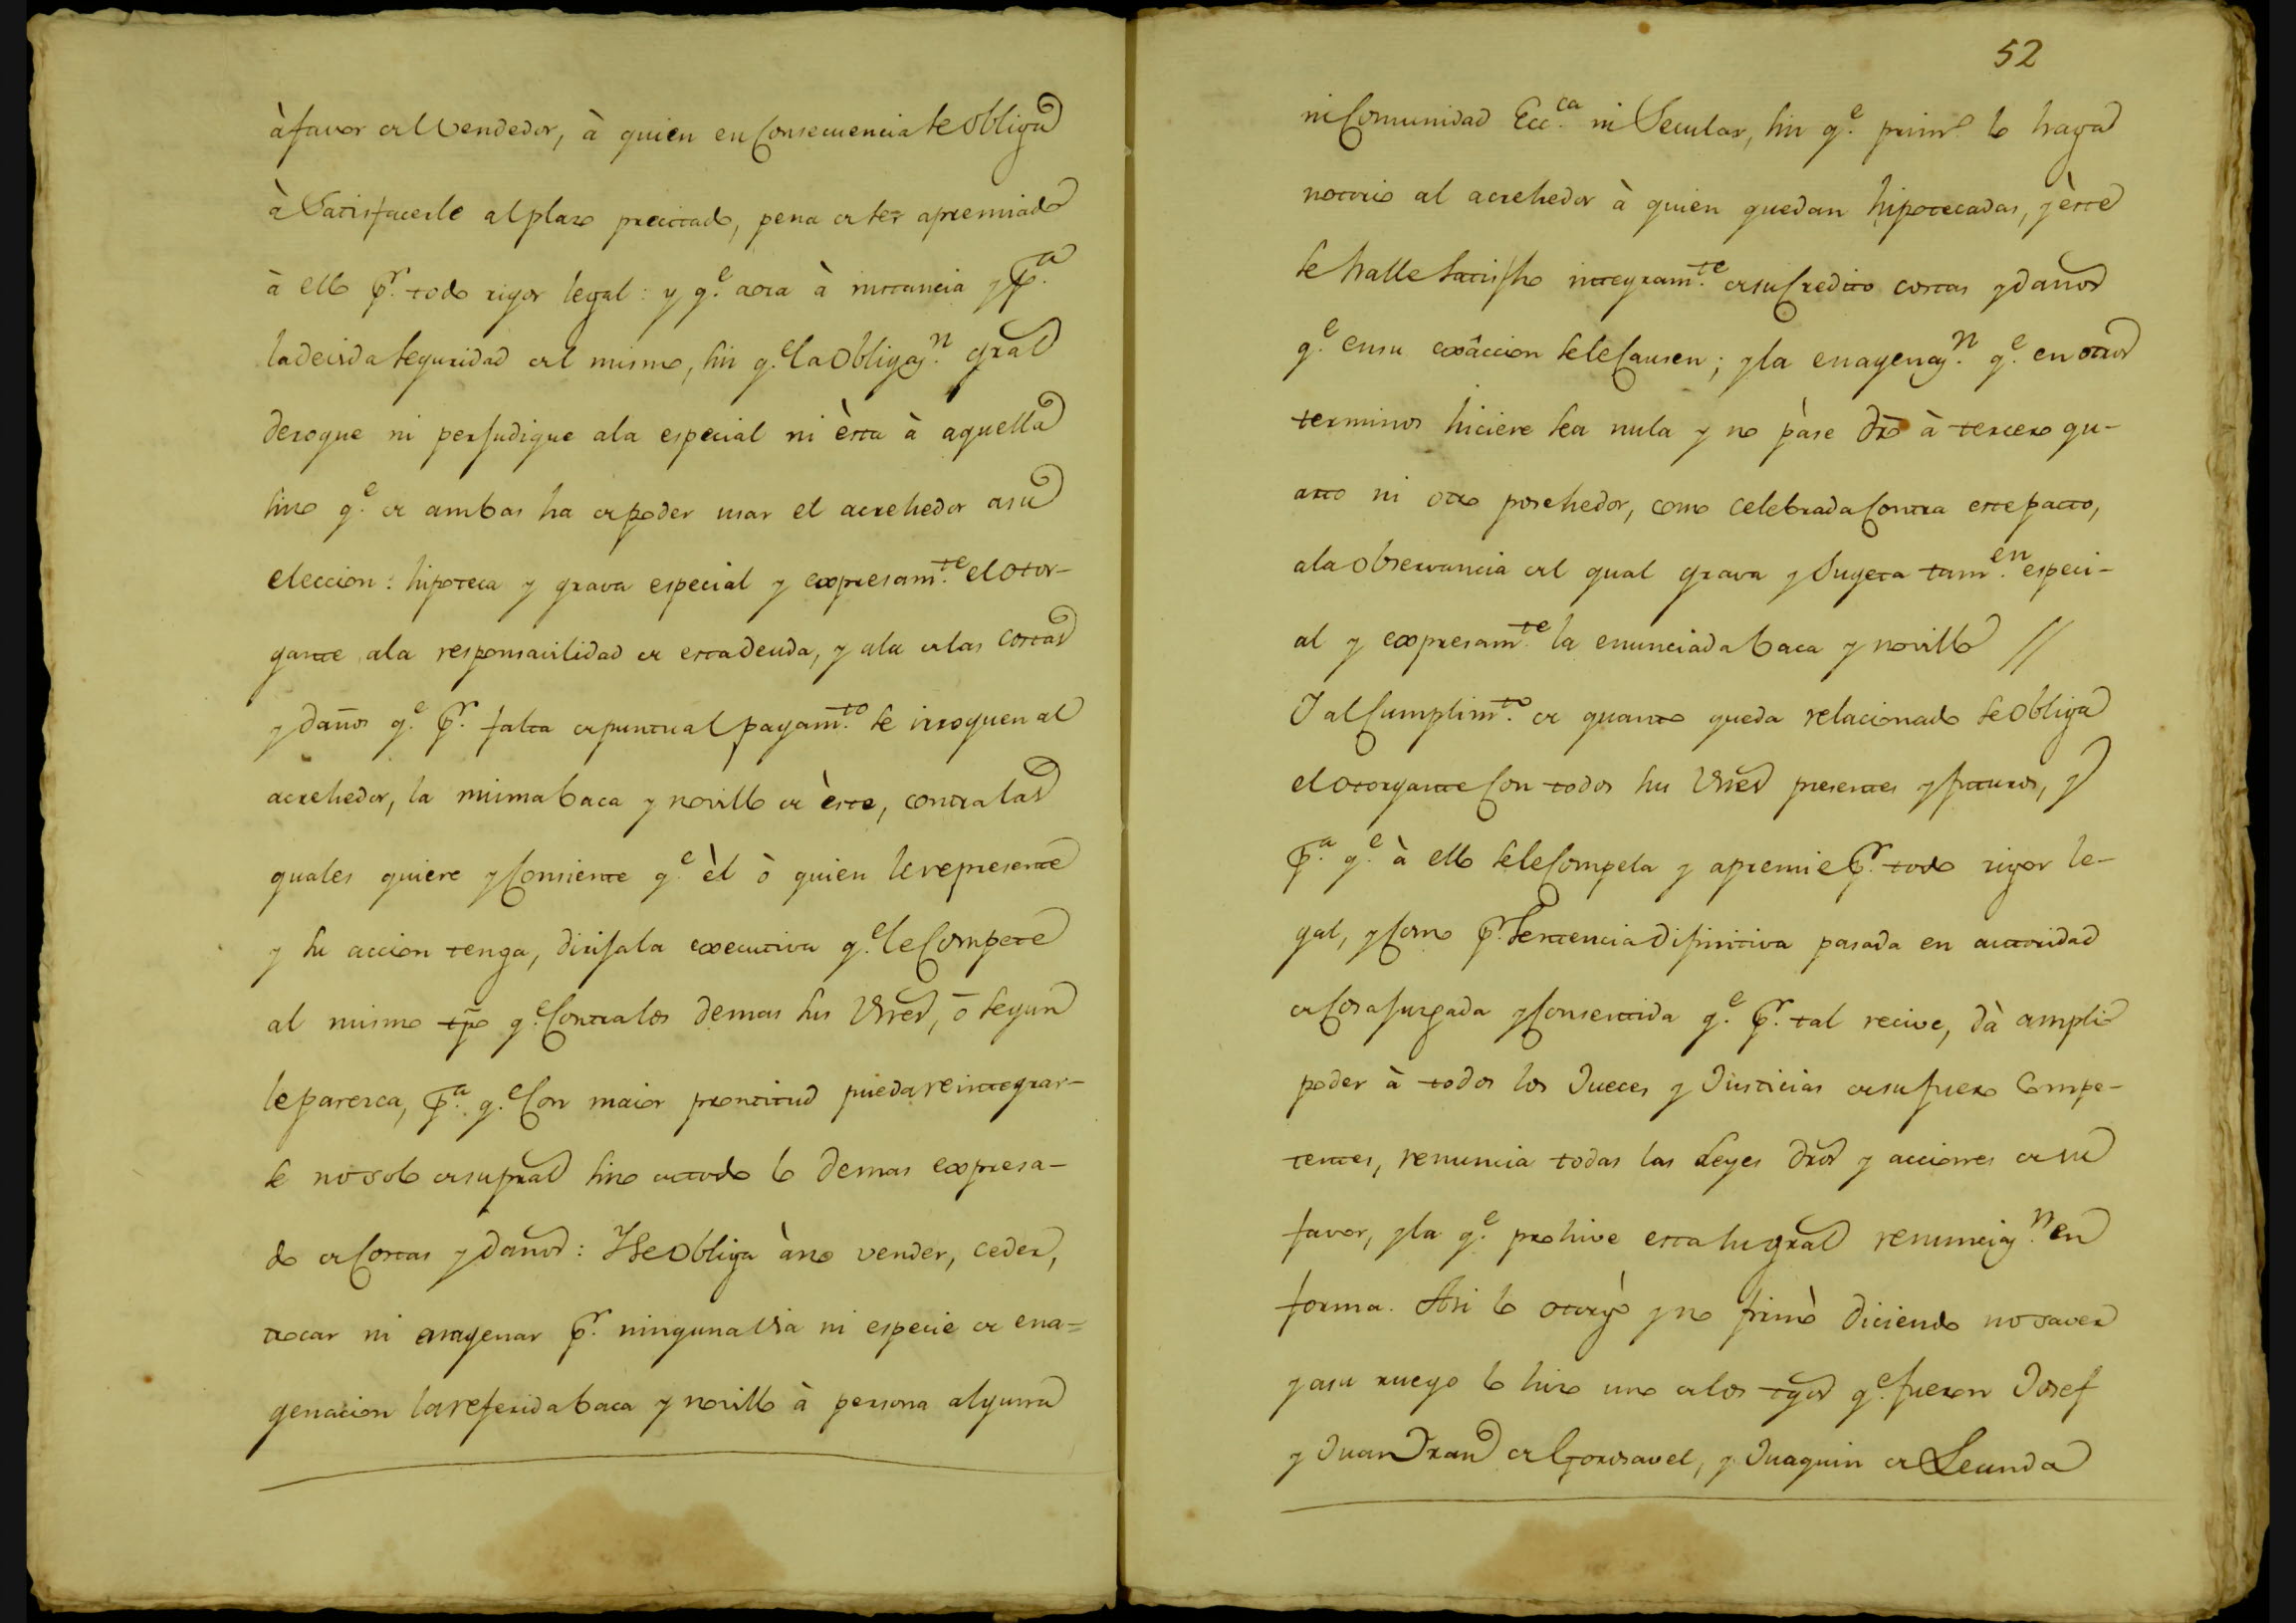 à favor de el Vendedor, à quien en Consecuencia se obliga
à Satisfacerle al plazo precitado, pena de ser apremiado
à ello pr. todo rigor legal: y qe. aora à instancia y pa.
la devida seguridad del mismo, sin qe. la Obligazn. gral
derogue ni perjudique a la especial ni èsta à aquella
sino qe. de ambas ha de poder usar el acrehedor a su
eleccion: hipoteca y grava especial y expresamte. el otor-
gante a la responsavilidad de esta deuda, y a la de las costas
y daños qe. pr. falta de puntual pagamto. se irroguen al
acrehedor, la misma baca y novillo de èste, contra las
quales quiere y Consiente qe. èl ò quien le represente
y su accion tenga, dirija la executiva qe. le Compete
al mismo tpo qe. Contra los demas sus Vnes, ò segun
le paresca, pa. qe. Con maior prontitud pueda reintegrar-
se no solo de su pral sino de todo lo demas expresa-
do de Costas y daños: Y se obliga à no vender, ceder,
trocar ni enagenar pr. ninguna via ni especie de ena=
genacion la referida baca y novillo à persona alguna
52
ni Comunidad Ecca. ni Secular, sin qe. primo lo haga
notorio al acrehedor à quien quedan hipotecadas, y èste
se halle satisfho integramte. de su Credito costas y daños
qe. en su exâccion se le Causen; y la enagenazn. qe. en otros
terminos hiciere sea nula y no pàse dro à tercero qu-
arto ni otro posehedor, como celebrada Contra este pacto,
a la observancia del qual grava y Sugeta tamen. especi-
al y expresamte. la enunciada baca y novillo //
Y al Cumplimto. de quanto queda relacionado se obliga
el otorgante Con todos sus Vnes presentes y futuros, y
pa. qe. à ello se le Compela y apremie pr. todo rigor le-
gal, y Como pr. Sentencia difinitiva pasada en autoridad
de Cosa juzgada y Consentida qe. pr. tal recive, dà amplio
poder à todos los Jueces y Justicias de su fuero Compe-
tentes, renuncia todas las Leyes dros y acciones de su
favor, y la qe. prohive esta su gral renunciazn. en
forma. Asi lo otorgò y no firmò diciendo no saver
y a su ruego lo hizo uno de los tgos qe. fueron Josef
y Juan de Gordsavel, y Juaquin de Leunda